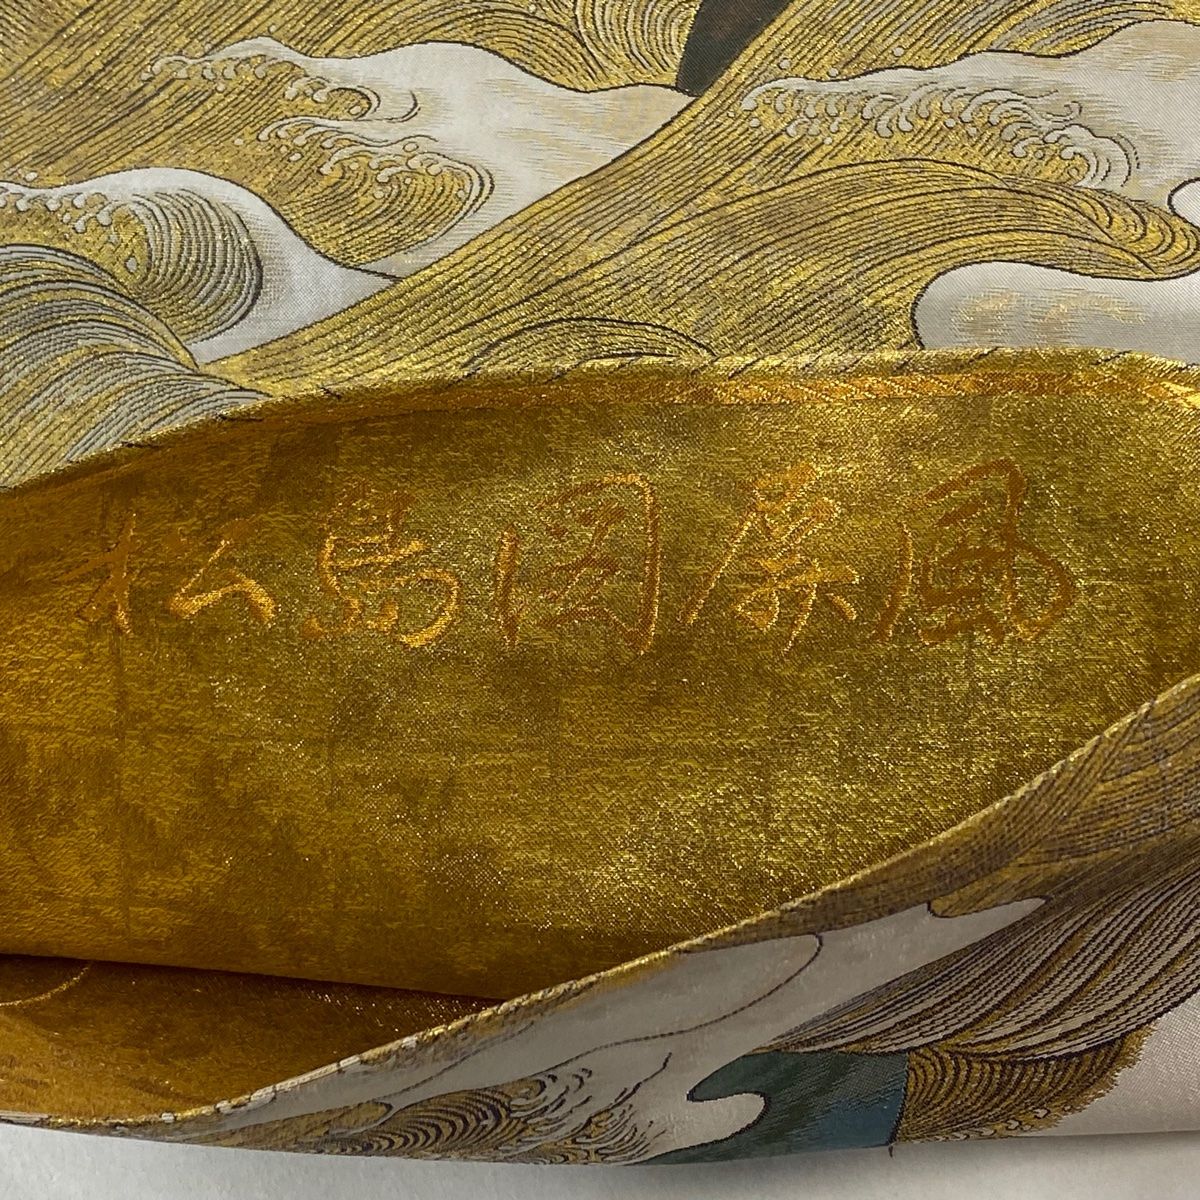 松島図屏風